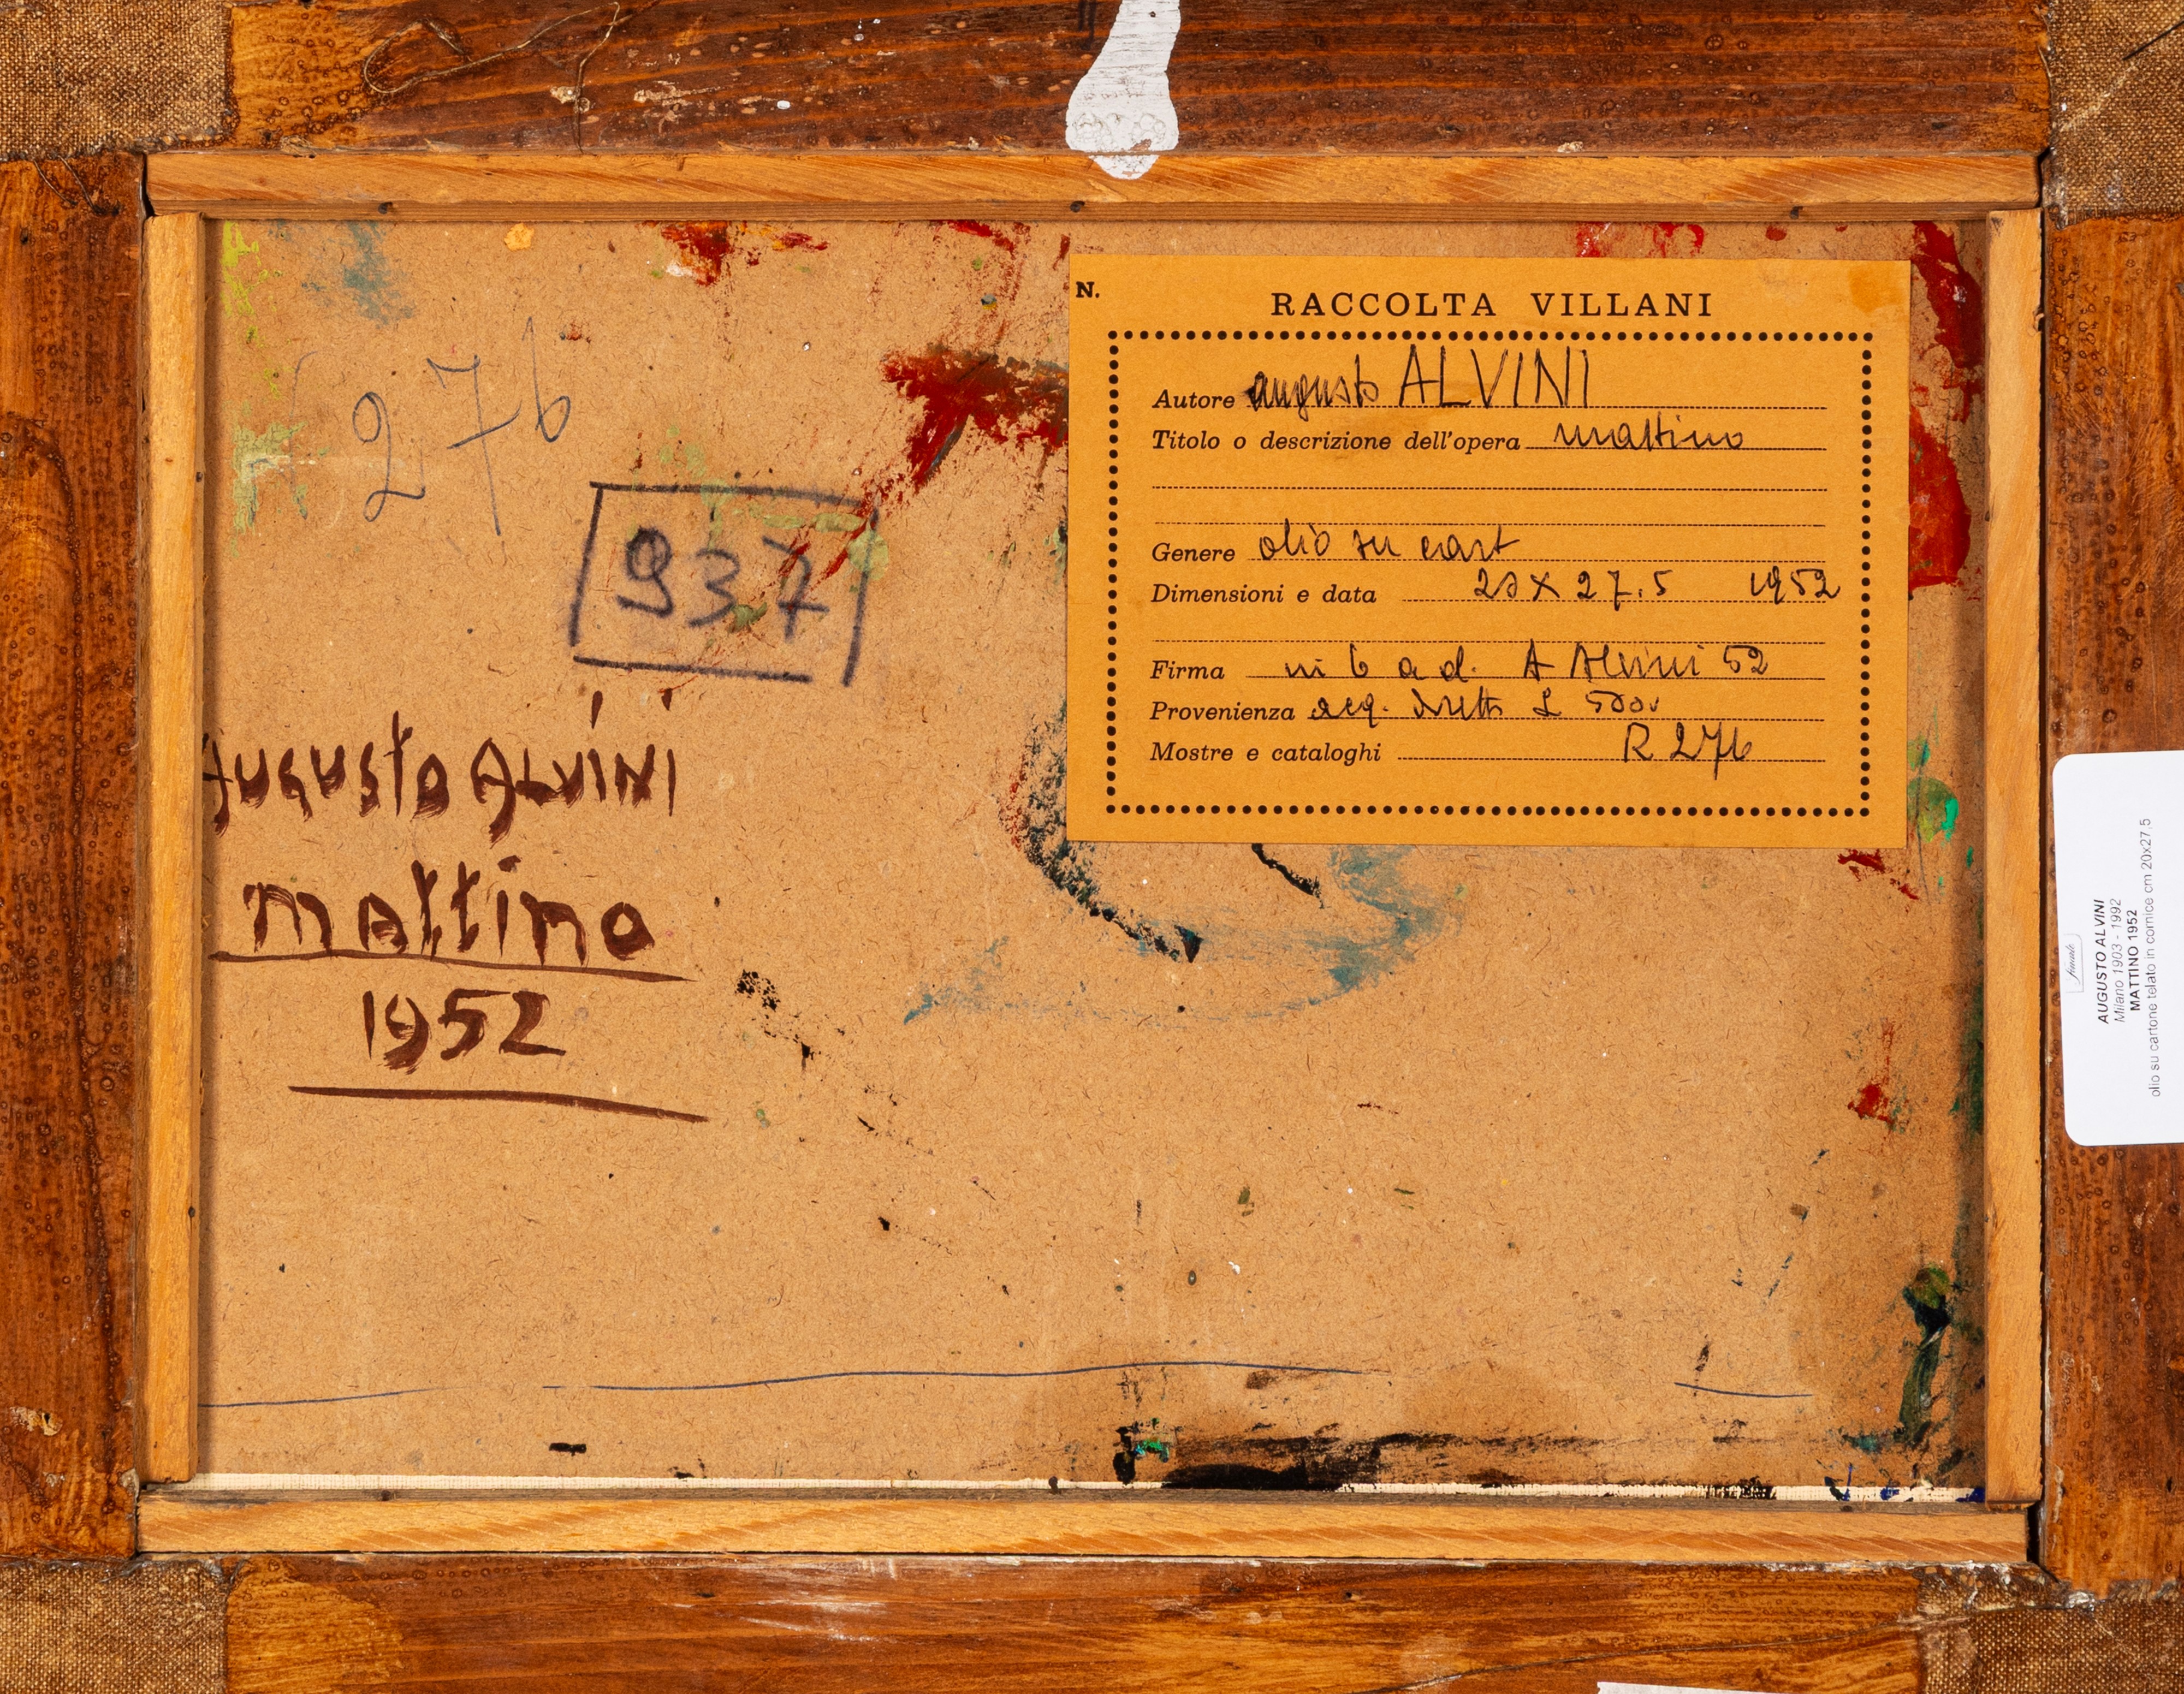 276
937
AUGUSTO ALVINI
mattino
1952
N.
RACCOLTA VILLANI
Autore augusto ALVINI
Titolo o descrizione dell'opera mattino
Genere olio su cart
Dimensioni e data 20 X 27.5 1952
Firma in b a d. A Alvini 52
Provenienza acq. dirett £ 5000
Mostre e cataloghi R 276
AUGUSTO ALVINI
Milano 1903 - 1992
MATTINO 1952
olio su cartone telato in cornice cm 20x27.5